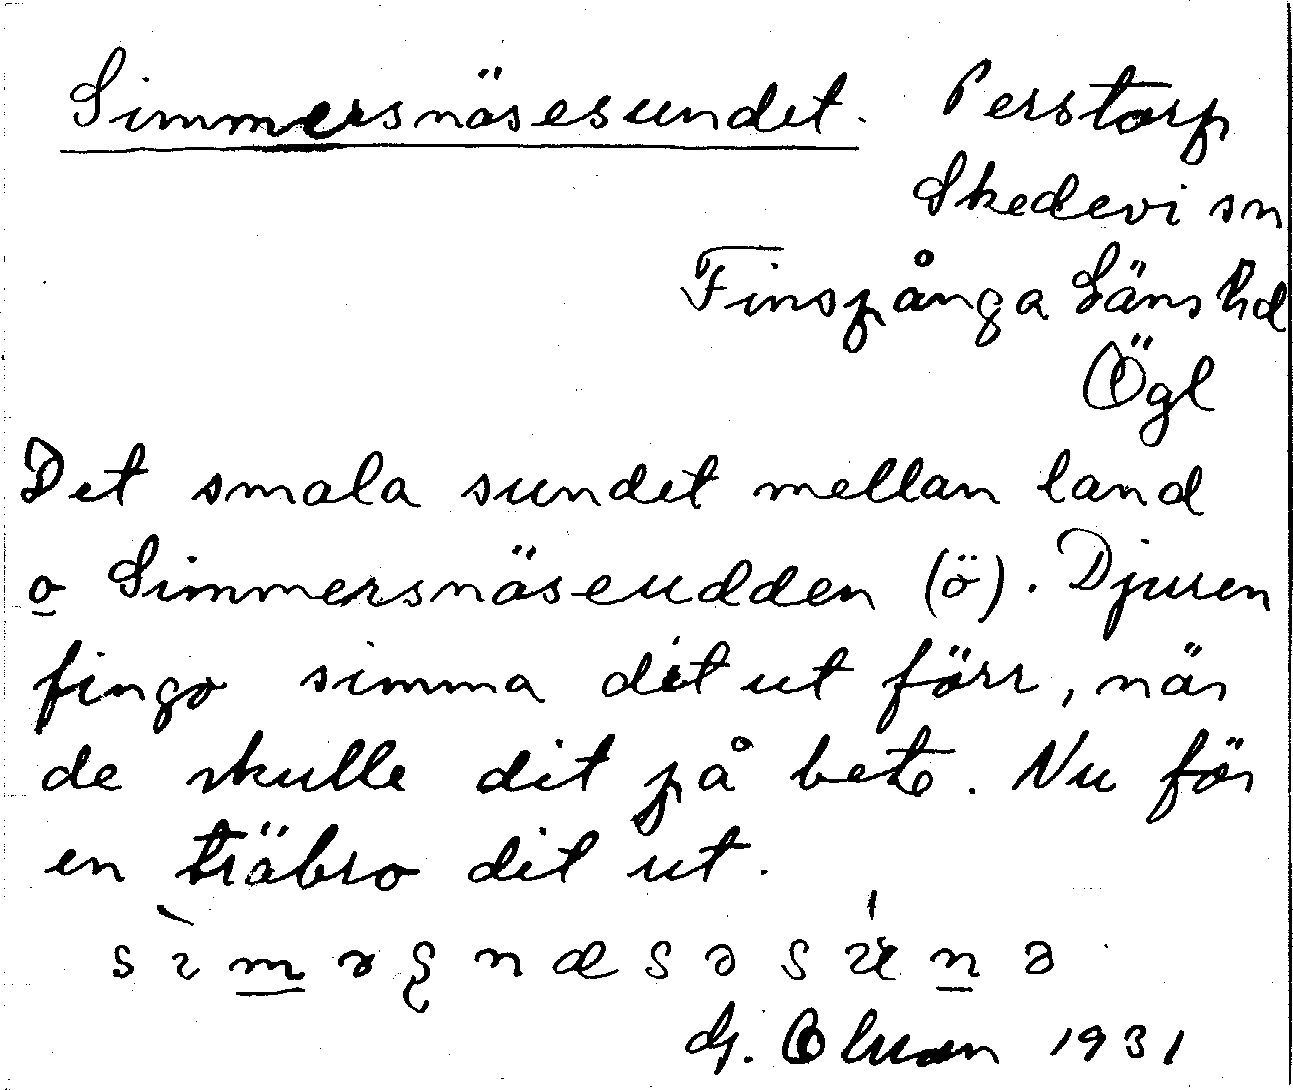 Simmersnäsesundet. Perstorp
Skedevi sn
Finspånga Läns hd
Ögl
Det smala sundet mellan land
o Simmersnäseudden (ö). Djuren
fingo simma dit ut förr, när
de skulle dit på bete. Nu för
en träbro dit ut.
G. Olsson 1931